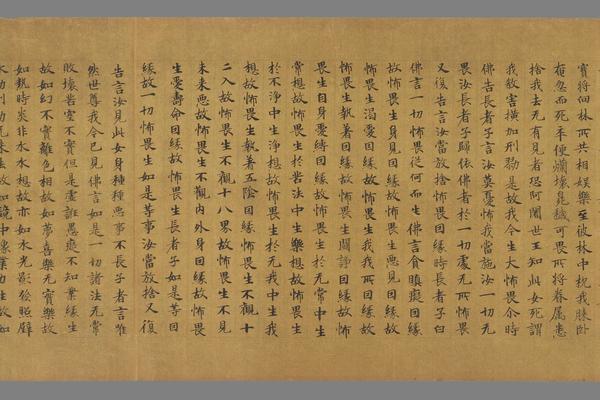 寶將向林所共相娛樂至彼林中枕我膝卧
奄忽而死卒便爛壞臭穢可畏所將眷属悉
捨我去无有見者恐阿闍世王知此女死謂
我欲害橫加刑勠是故我今生大怖畏尒時
佛告長者子言汝莫憂怖我當施汝一切无
畏汝長者子歸依佛者於一切處无所怖畏
又復告言汝當放捨怖畏因緣時長者子白
佛言一切怖畏從何而生佛言貪瞋癡因緣
故怖畏生身見因緣故怖畏生惡見因緣故
怖畏生渴愛因緣故怖畏生我我所因緣故
怖畏生執著因緣故怖畏生鬪諍因緣故怖
畏生自身憂綺因緣故怖畏生於无常中生
常想故怖畏生於苦法中生樂想故怖畏生
於不淨中生淨想故怖畏生於无我中生我
想故怖畏生執著五陰因緣怖畏生不觀十
二入故怖畏生不觀十八界故怖畏生不見
未来惡故怖畏生不觀內外身因緣故怖畏
生愛壽命因緣故怖畏生長者子如是等因
緣故一切怖畏生如是等事汝當放捨又復
告言汝見此女身種種惡事不長者子言唯
然世尊我今已見佛言如是一切諸法无常
敗壞苦空不實但是虛誑愚癡不知業緣生
故如幻不實離色相故如夢喜樂无實樂故
如熱時炎非水水想故亦如水光影